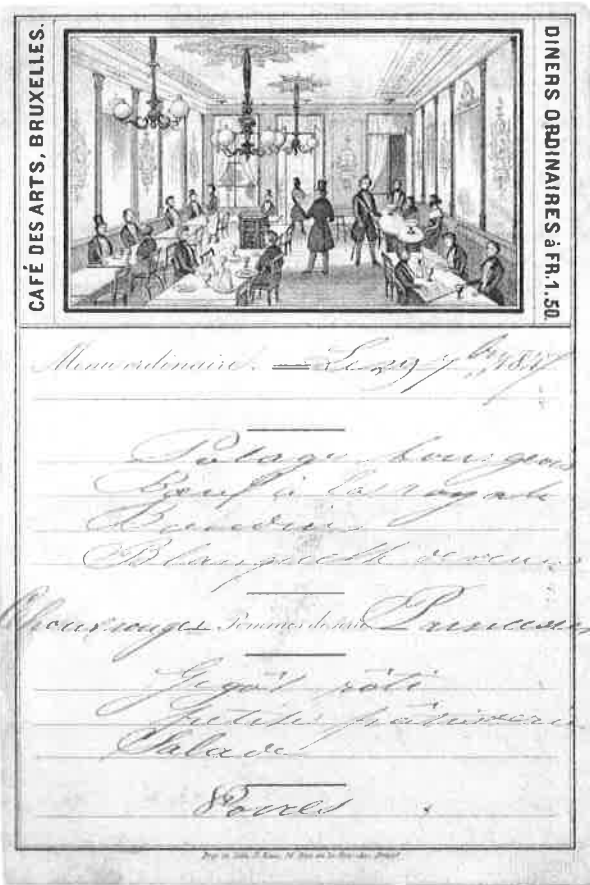 CAFÉ DES ARTS, BRUXELLES.
DINERS ORDINAIRES à FR.1,50.
Menu ordinaire. Le 29 7bre
Potage bourgeois
Bœuf à la royale
Boudin
Blanquette de veau
Choux rouges Pommes de terre Princesses
Gigot rôti
petite pâtisserie
Salade
Poires